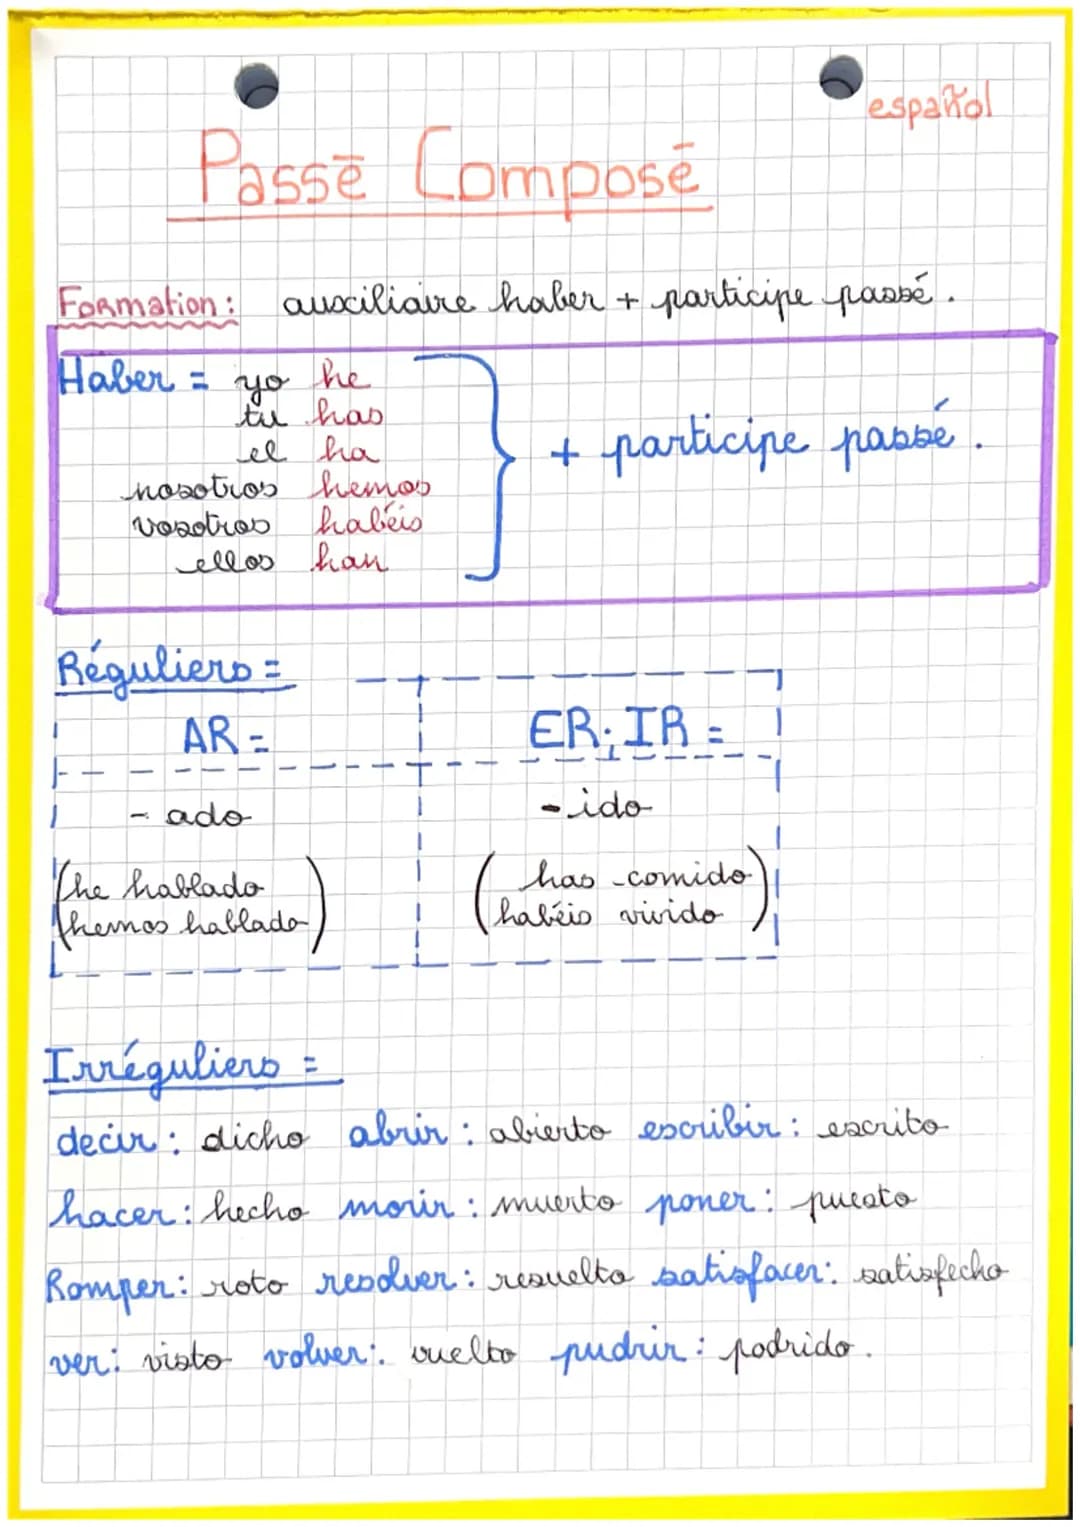 español
Passé Composé
Formation : auxiliaire haber + participe passé .
Haber = yo he
tu has
el ha
nosotros hemos
vosotros habéis
ellos han
+ participe passé .
Réguliers =
AR = ER ; IR =
- ado - ido
(he hablado (has comido)
hemos hablado) habéis vivido)
Irréguliers =
decir : dicho abrir : abierto escribir : escrito
hacer : hecho morir : muerto poner : puesto
Romper : roto resolver : resuelto satisfacer : satisfecho
ver : visto volver : vuelto pudrir : podrido .